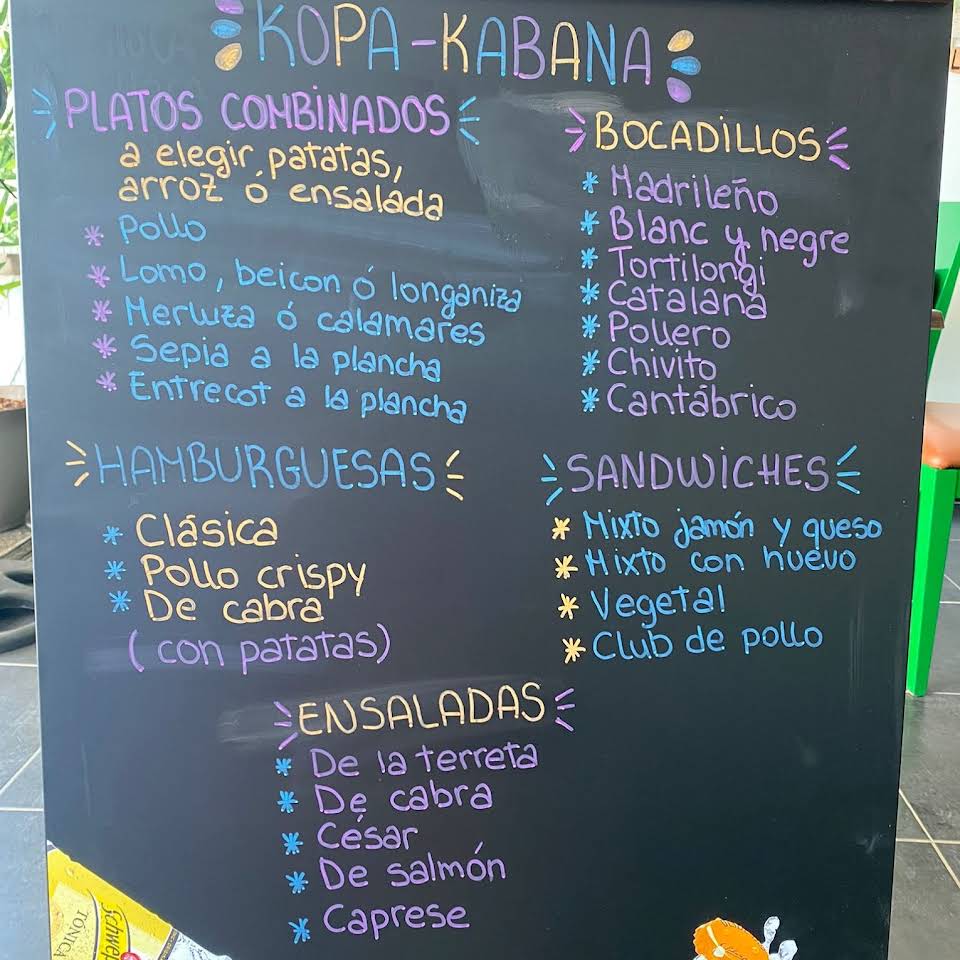 KOPA-KABANA
PLATOS COMBINADOS
a elegir patatas,
arroz ó ensalada
* Pollo
* Lomo, beicon ó longaniza
* Merluza ó calamares
* Sepia a la plancha
* Entrecot a la plancha
BOCADILLOS
* Madrileño
* Blanc y negre
* Tortilongi
* Catalana
* Pollero
* Chivito
* Cantábrico
HAMBURGUESAS
* Clásica
* Pollo crispy
* De cabra
(con patatas)
SANDWICHES
* Mixto jamón y queso
* Mixto con huevo
* Vegetal
* Club de pollo
ENSALADAS
* De la terreta
* De cabra
* César
* De salmón
* Caprese
Schwep
TONICA